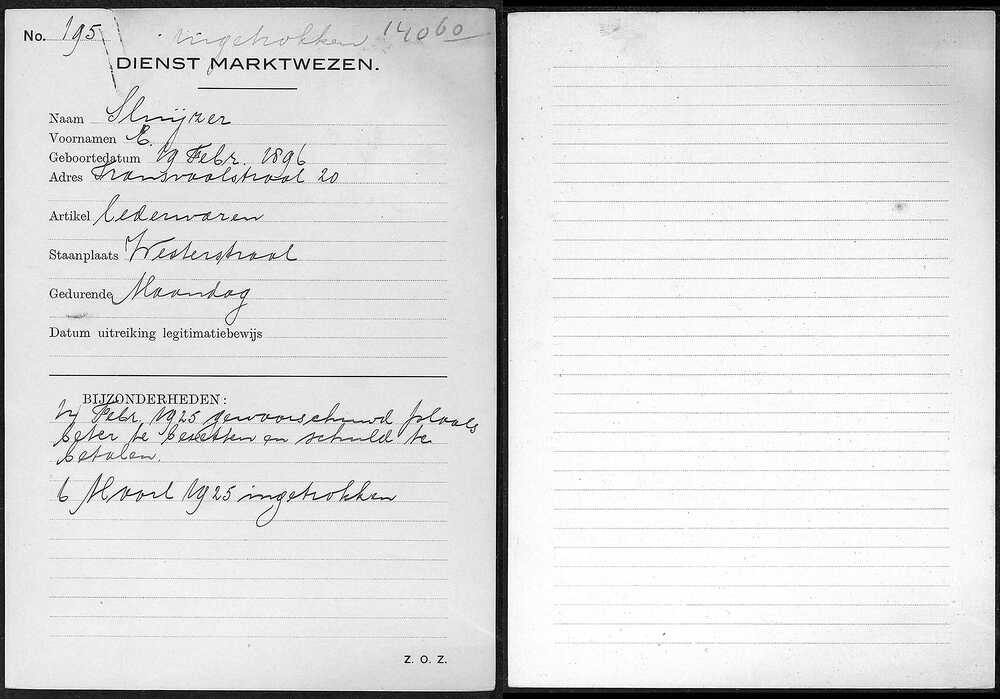 No. 195 ingetrokken 14060
DIENST MARKTWEZEN.
Naam Sluijzer
Voornamen E.
Geboortedatum 19 Febr. 1896
Adres Transvaalstraat 20
Artikel Lederwaren
Staanplaats Westerstraat
Gedurende Maandag
Datum uitreiking legitimatiebewijs
BIJZONDERHEDEN:
Febr. 1925 gewaarschuwd plaats
beter te bezetten en schuld te
betalen.
6 Maart 1925 ingetrokken
Z. O. Z.